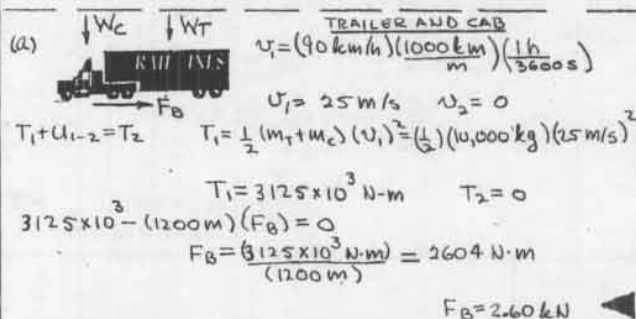 TRAILER AND CAB
(a) W_C W_T v₁ = (90 km/h)(1000 km/m)(1h/3600s)
F_B
v₁ = 25 m/s v₂ = 0
T₁ + U₁₋₂ = T₂ T₁ = ½ (m_T + m_C) (v₁)² = (½)(10,000 kg)(25 m/s)²
T₁ = 3125 × 10³ N-m T₂ = 0
3125 × 10³ - (1200 m)(F_B) = 0
F_B = (3125 × 10³ N·m)/(1200 m) = 2604 N·m
F_B = 2.60 kN